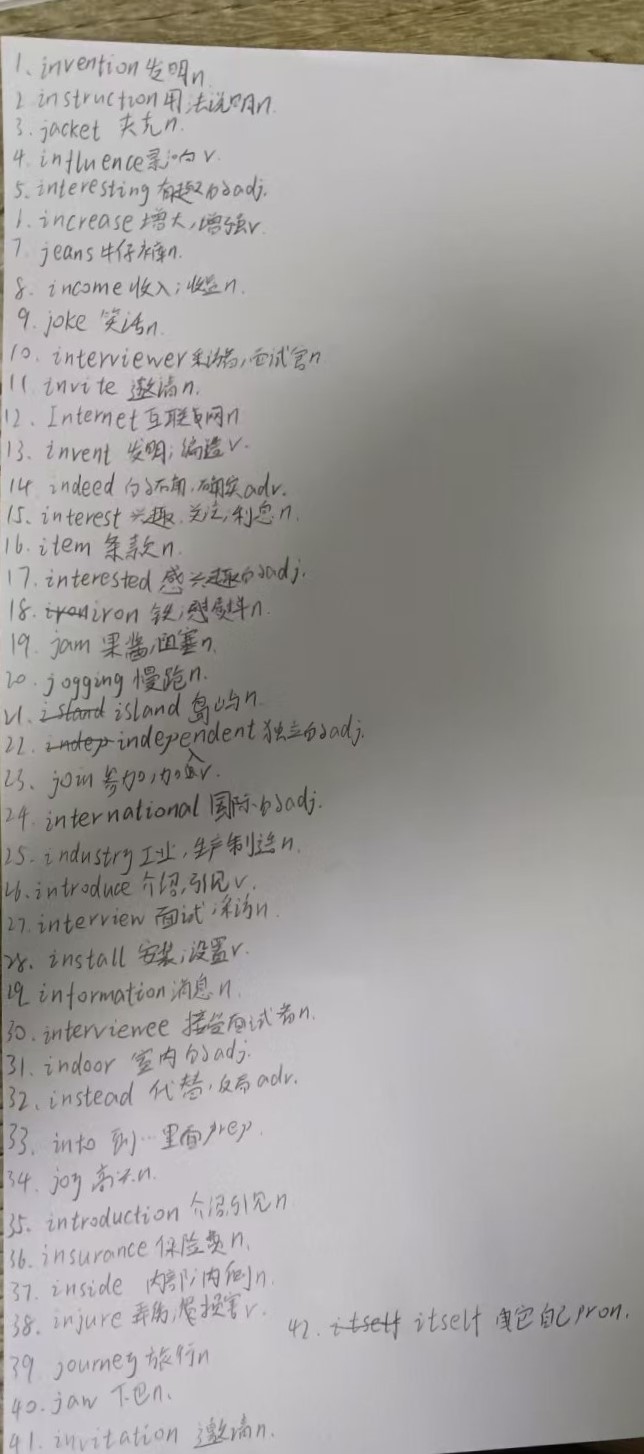 1、invention 发明n
2 instruction 用法说明n.
3. jacket 夹克n.
4. influence 影响v.
5. interesting 有趣的adj.
1. increase 增大,增强v
7. jeans 牛仔裤n.
8. income 收入;收益n.
9. joke 笑话n.
10. interviewer 采访者,面试官n
11. invite 邀请n.
12. Internet 互联网n
13. invent 发明;编造v.
14. indeed 的确,确实adv.
15、interest 兴趣.关注,利息n.
16. item 条款n.
17. interested 感兴趣的adj.
18. iron 铁,熨斗n.
19. jam 果酱,阻塞n.
20. jogging 慢跑n.
21. island island 岛屿n.
22. indep independent 独立的adj.
23. join 参加,加入v.
24. international 国际的adj.
25. industry 工业,生产制造n.
26. introduce 介绍,引见v.
27. interview 面试;采访n.
28. install 安装;设置v.
29 information 消息n.
30. interviewee 接受面试者n.
31. indoor 室内的adj.
32. instead 代替,反而adv.
33. into 到…里面prep.
34. joy 高兴n.
35. introduction 介绍,引见n
36. insurance 保险费n.
37. inside 内部;内侧n.
38. injure 弄伤,损害v.
42. itself itself 它自己pron.
39. journey 旅行n
40. jaw 下巴n.
41. invitation 邀请n.